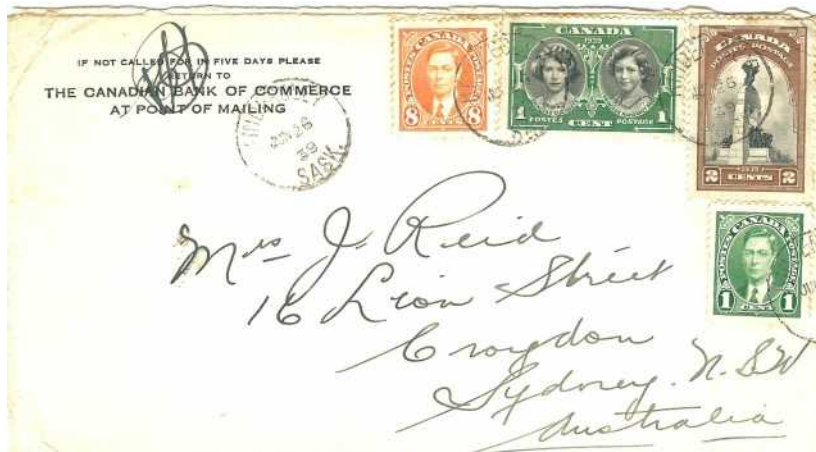 IF NOT CALLED FOR IN FIVE DAYS PLEASE
RETURN TO
THE CANADIAN BANK OF COMMERCE
AT POINT OF MAILING
26
39
SASK.
POSTES CANADA POSTAGE
8 8
CENTS
CANADA
1939
1 1
POSTES CENT POSTAGE
CANADA
POSTES POSTAGE
1939
2 CENTS 2
POSTES CANADA POSTAGE
1 1
CENT
Mrs J. Reid
16 Lion Street
Croydon
Sydney. N. S W
Australia